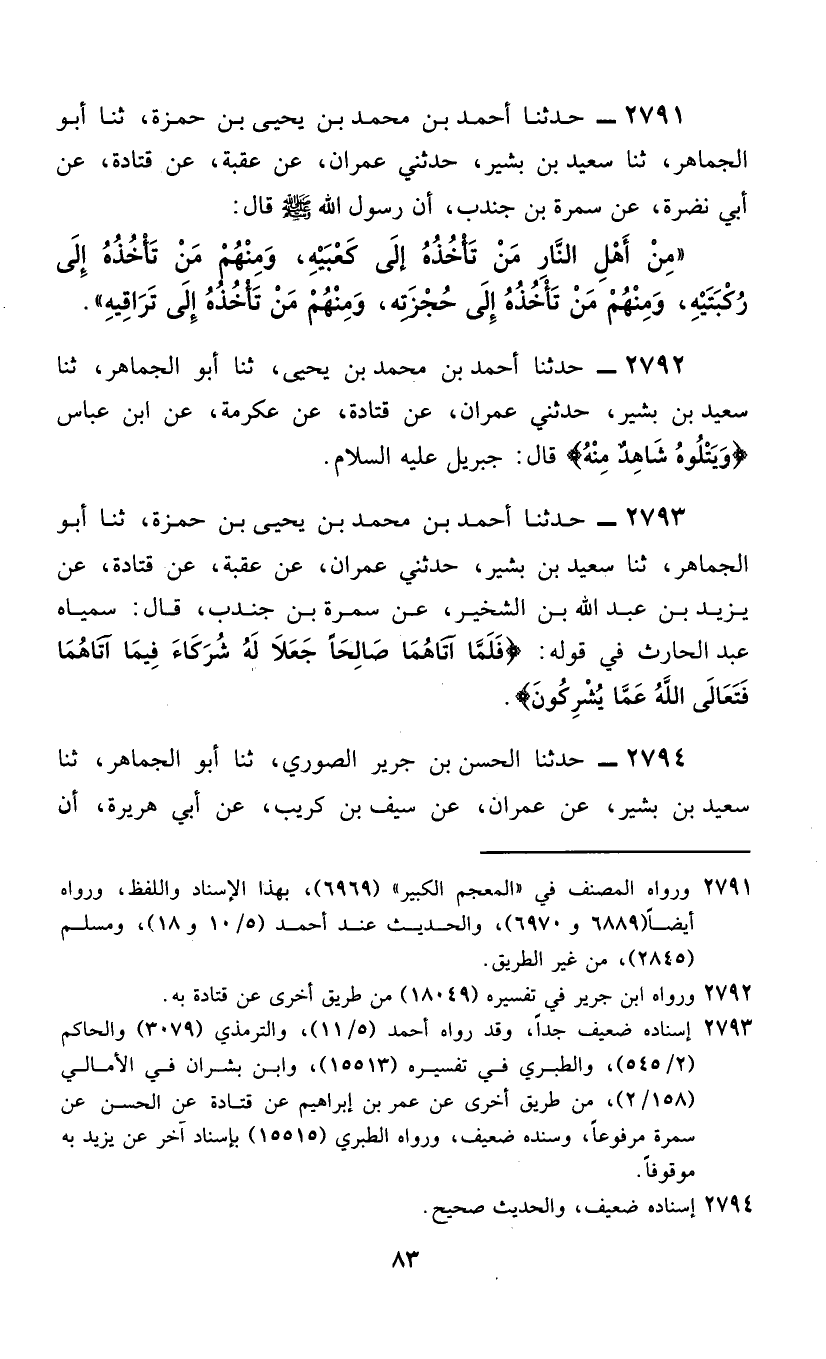 ٢٧٩١ ــ حدثنا أحمد بن محمد بن يحيى بن حمزة، ثنا أبو
الجماهر، ثنا سعيد بن بشير، حدثني عمران، عن عقبة، عن قتادة، عن
أبي نضرة، عن سمرة بن جندب، أن رسول الله ﷺ قال:
«مِنْ أَهْلِ النَّارِ مَنْ تَأْخُذُهُ إلَى كَعْبَيْهِ، وَمِنْهُمْ مَنْ تَأْخُذُهُ إِلَى
رُكْبَتَيْهِ، وَمِنْهُمْ مَنْ تَأْخُذُهُ إِلَى حُجْزَتِه، وَمِنْهُمْ مَنْ تَأْخُذُهُ إِلَى تَرَاقِيهِ».
٢٧٩٢ ــ حدثنا أحمد بن محمد بن يحيى، ثنا أبو الجماهر، ثنا
سعيد بن بشير، حدثني عمران، عن قتادة، عن عكرمة، عن ابن عباس
﴿وَيَتْلُوهُ شَاهِدٌ مِنْهُ﴾ قال: جبريل عليه السلام.
٢٧٩٣ ــ حدثنا أحمد بن محمد بن يحيى بن حمزة، ثنا أبو
الجماهر، ثنا سعيد بن بشير، حدثني عمران، عن عقبة، عن قتادة، عن
يزيد بن عبد الله بن الشخير، عن سمرة بن جندب، قال: سمياه
عبد الحارث في قوله: ﴿فَلَمَّا آتَاهُمَا صَالِحَاً جَعَلاَ لَهُ شُرَكَاءَ فِيمَا آتَاهُمَا
فَتَعَالَى اللَّهُ عَمَّا يُشْرِكُونَ﴾.
٢٧٩٤ ــ حدثنا الحسن بن جرير الصوري، ثنا أبو الجماهر، ثنا
سعيد بن بشير، عن عمران، عن سيف بن كريب، عن أبي هريرة، أن
٢٧٩١ ورواه المصنف في «المعجم الكبير» (٦٩٦٩)، بهذا الإسناد واللفظ، ورواه
أيضاً(٦٨٨٩ و ٦٩٧٠)، والحديث عند أحمد (١٠/٥ و ١٨)، ومسلم
(٢٨٤٥)، من غير الطريق.
٢٧٩٢ ورواه ابن جرير في تفسيره (١٨٠٤٩) من طريق أخرى عن قتادة به.
٢٧٩٣ إسناده ضعيف جداً، وقد رواه أحمد (١١/٥)، والترمذي (٣٠٧٩) والحاكم
(٥٤٥/٢)، والطبري في تفسيره (١٥٥١٣)، وابن بشران في الأمالي
(٢/١٥٨)، من طريق أخرى عن عمر بن إبراهيم عن قتادة عن الحسن عن
سمرة مرفوعاً، وسنده ضعيف، ورواه الطبري (١٥٥١٥) بإسناد آخر عن يزيد به
موقوفاً.
٢٧٩٤ إسناده ضعيف، والحديث صحيح.
٨٣